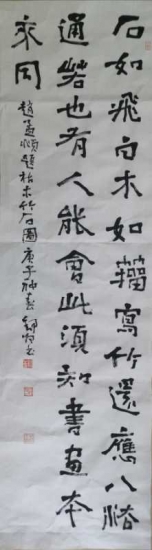 石如飛白木如籀寫竹還應八
通若也有人能會此須知書畫本
來同
趙孟頫題枯木竹石圖庚子神春